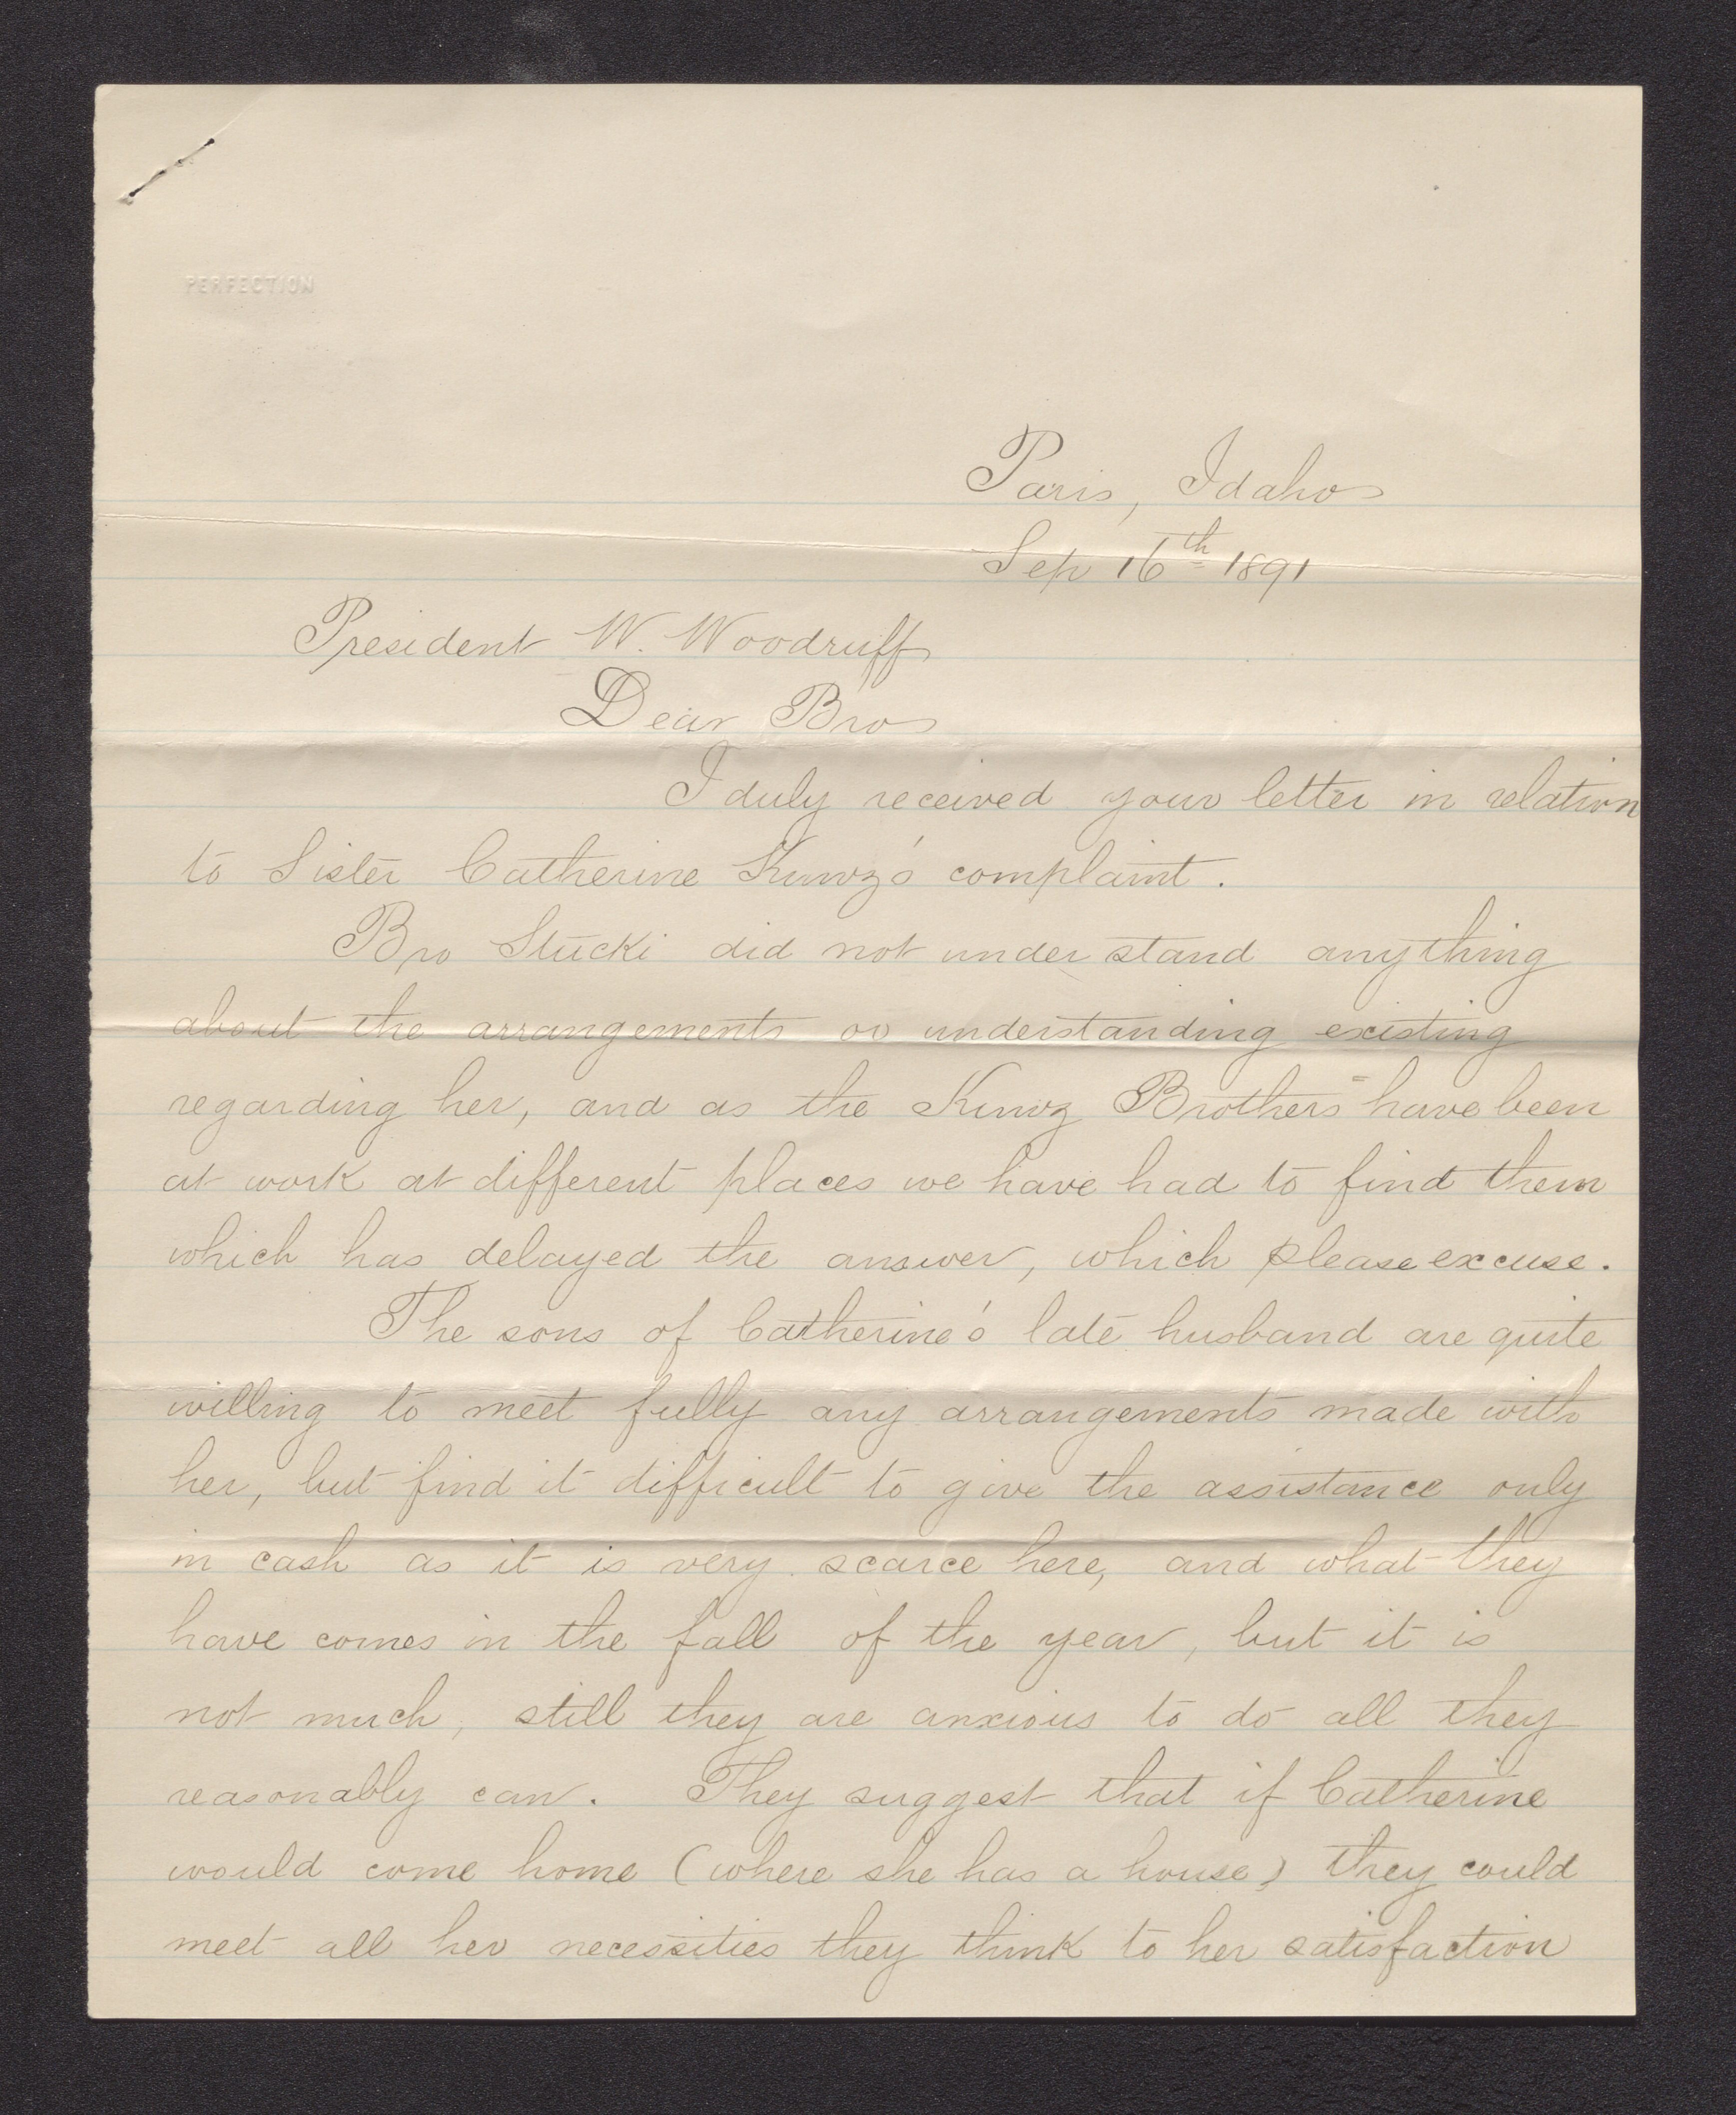 PERFECTION
Paris, Idaho
Sep 16th 1891
President W. Woodruff
Dear Bro
I duly received your letter in relation
to Sister Catherine Kunz's complaint.
Bro Stucki did not under stand anything
about the arrangements or understanding existing
regarding her, and as the Kunz Brothers have been
at work at different places we have had to find them
which has delayed the answer, which please excuse.
The sons of Catherine's late husband are quite
willing to meet fully any arrangements made with
her, but find it difficult to give the assistance only
in cash as it is very scarce here, and what they
have comes in the fall of the year, but it is
not much, still they are anxious to do all they
reasonably can. They suggest that if Catherine
would come home (where she has a house) they could
meet all her necessities they think to her satisfaction